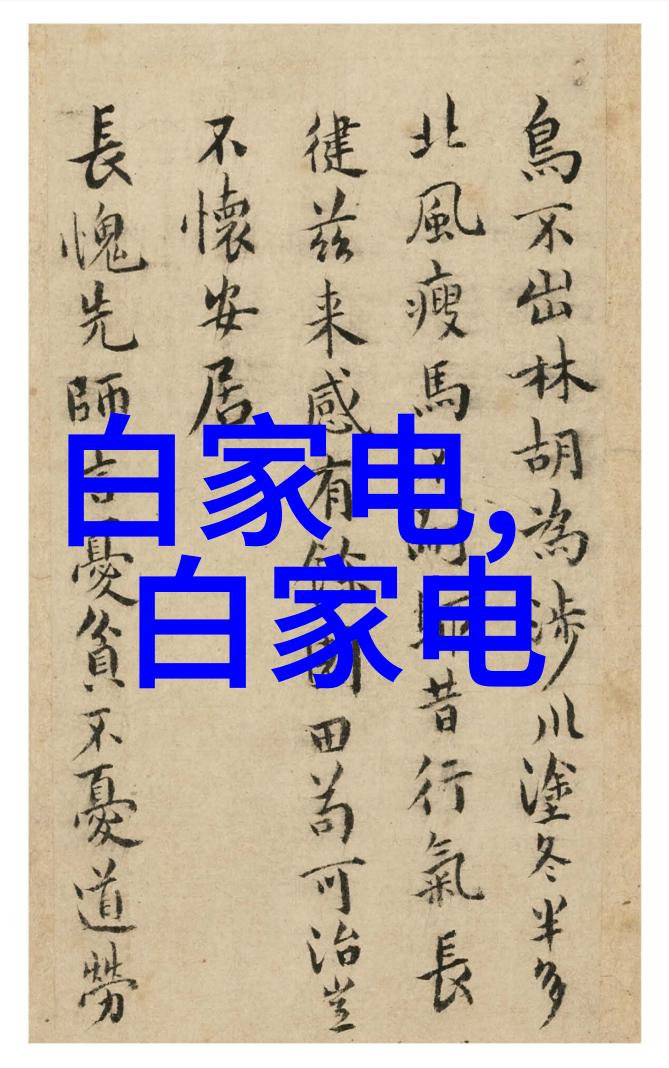 鳥不出林胡為涉川塗冬半多
北風瘦馬耐昔行氣長
健茲来感有餘田苟可治豈
不懷安居
長愧先師言憂貧不憂道勞
白家电,
白家电